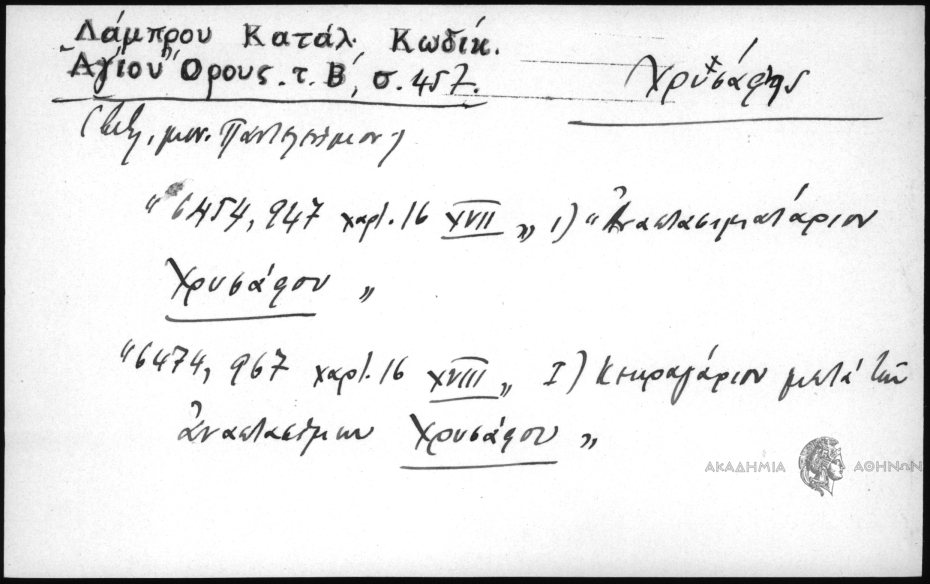 Λάμπρου Κατάλ. Κωδίκ.
Ἁγίου Ὄρους. τ. Β΄, σ. 457.
Χρυσάφης
μον. Παντελεήμονος)
"6454, 947 χαρτ. 16 XVII „ 1) "Ἀναστασιματάριον
Χρυσάφου „
"6474, 967 χαρτ. 16 XVIII „ I) Κεκραγάριον μετὰ τῶν
ἀναστασίμων Χρυσάφου „
ΑΚΑΔΗΜΙΑ ΑΘΗΝΩΝ